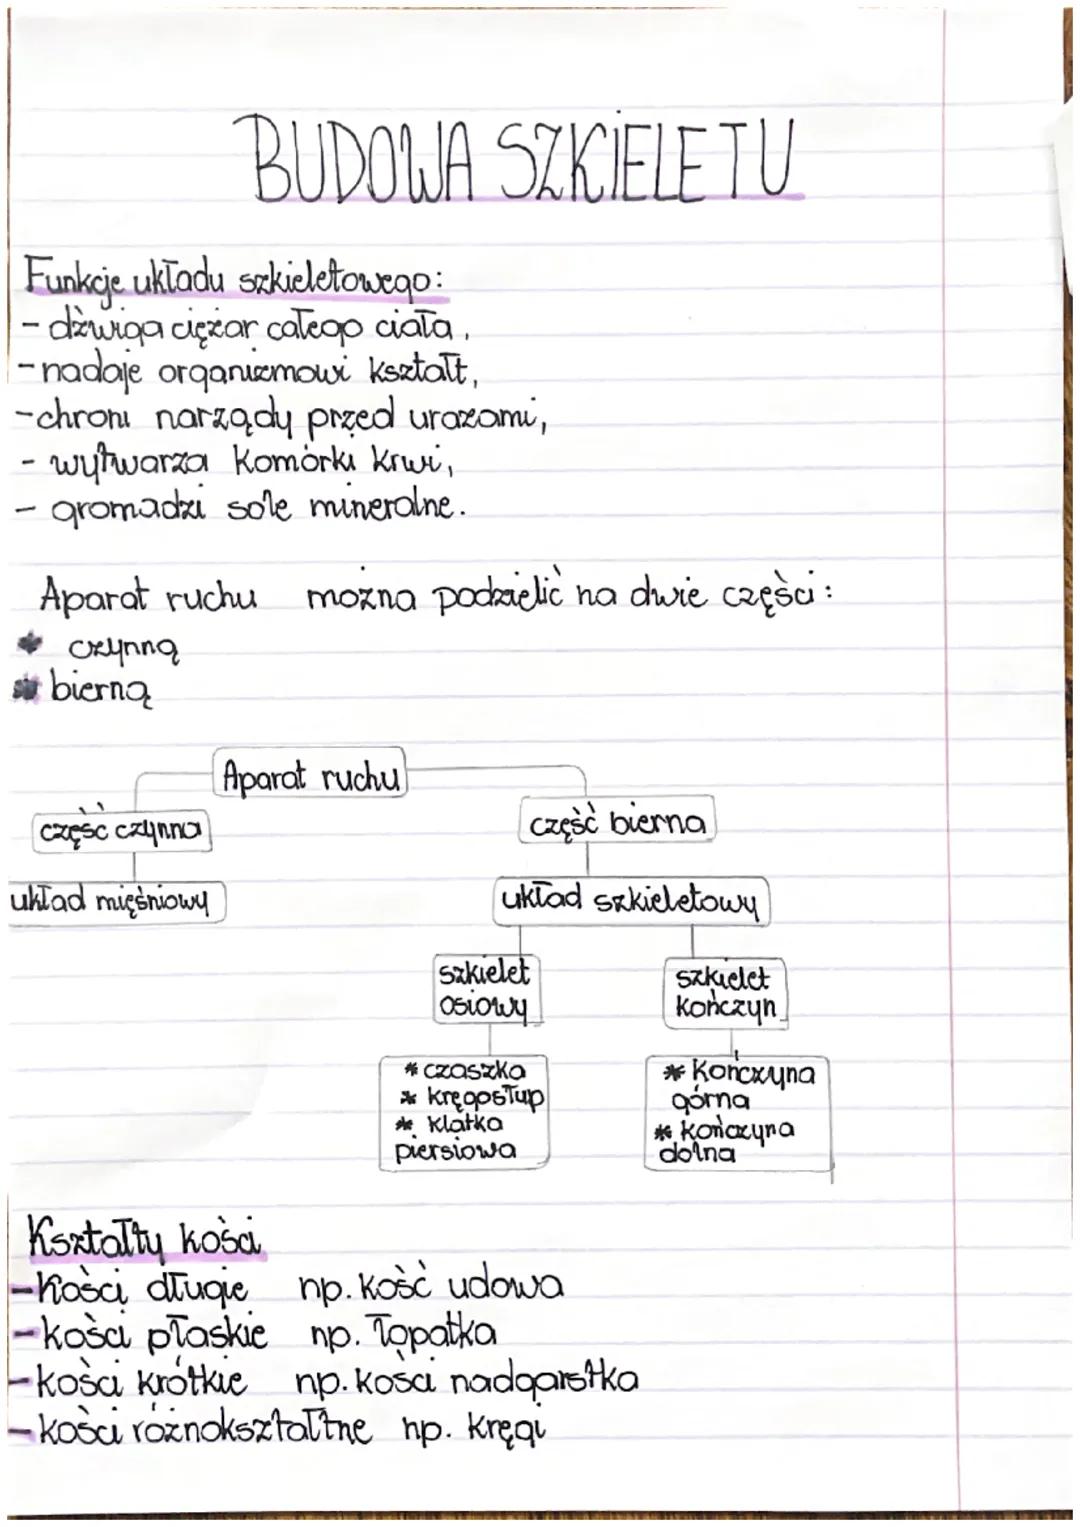 BUDOWA SZKIELETU
Funkcje układu szkieletowego:
- dźwiga ciężar całego ciała,
- nadaje organizmowi kształt,
- chroni narządy przed urazami,
- wytwarza komórki krwi,
- gromadzi sole mineralne.
Aparat ruchu można podzielić na dwie części:
* czynną
* bierną
Aparat ruchu
część czynna
część bierna
układ mięśniowy
układ szkieletowy
szkielet
osiowy
szkielet
kończyn
* czaszka
* kręgosłup
* klatka
piersiowa
* Kończyna
górna
* kończyna
dolna
Kształty kości
- kości długie np. kość udowa
- kości płaskie np. łopatka
- kości krótkie np. kości nadgarstka
- kości różnokształtne np. kręgi